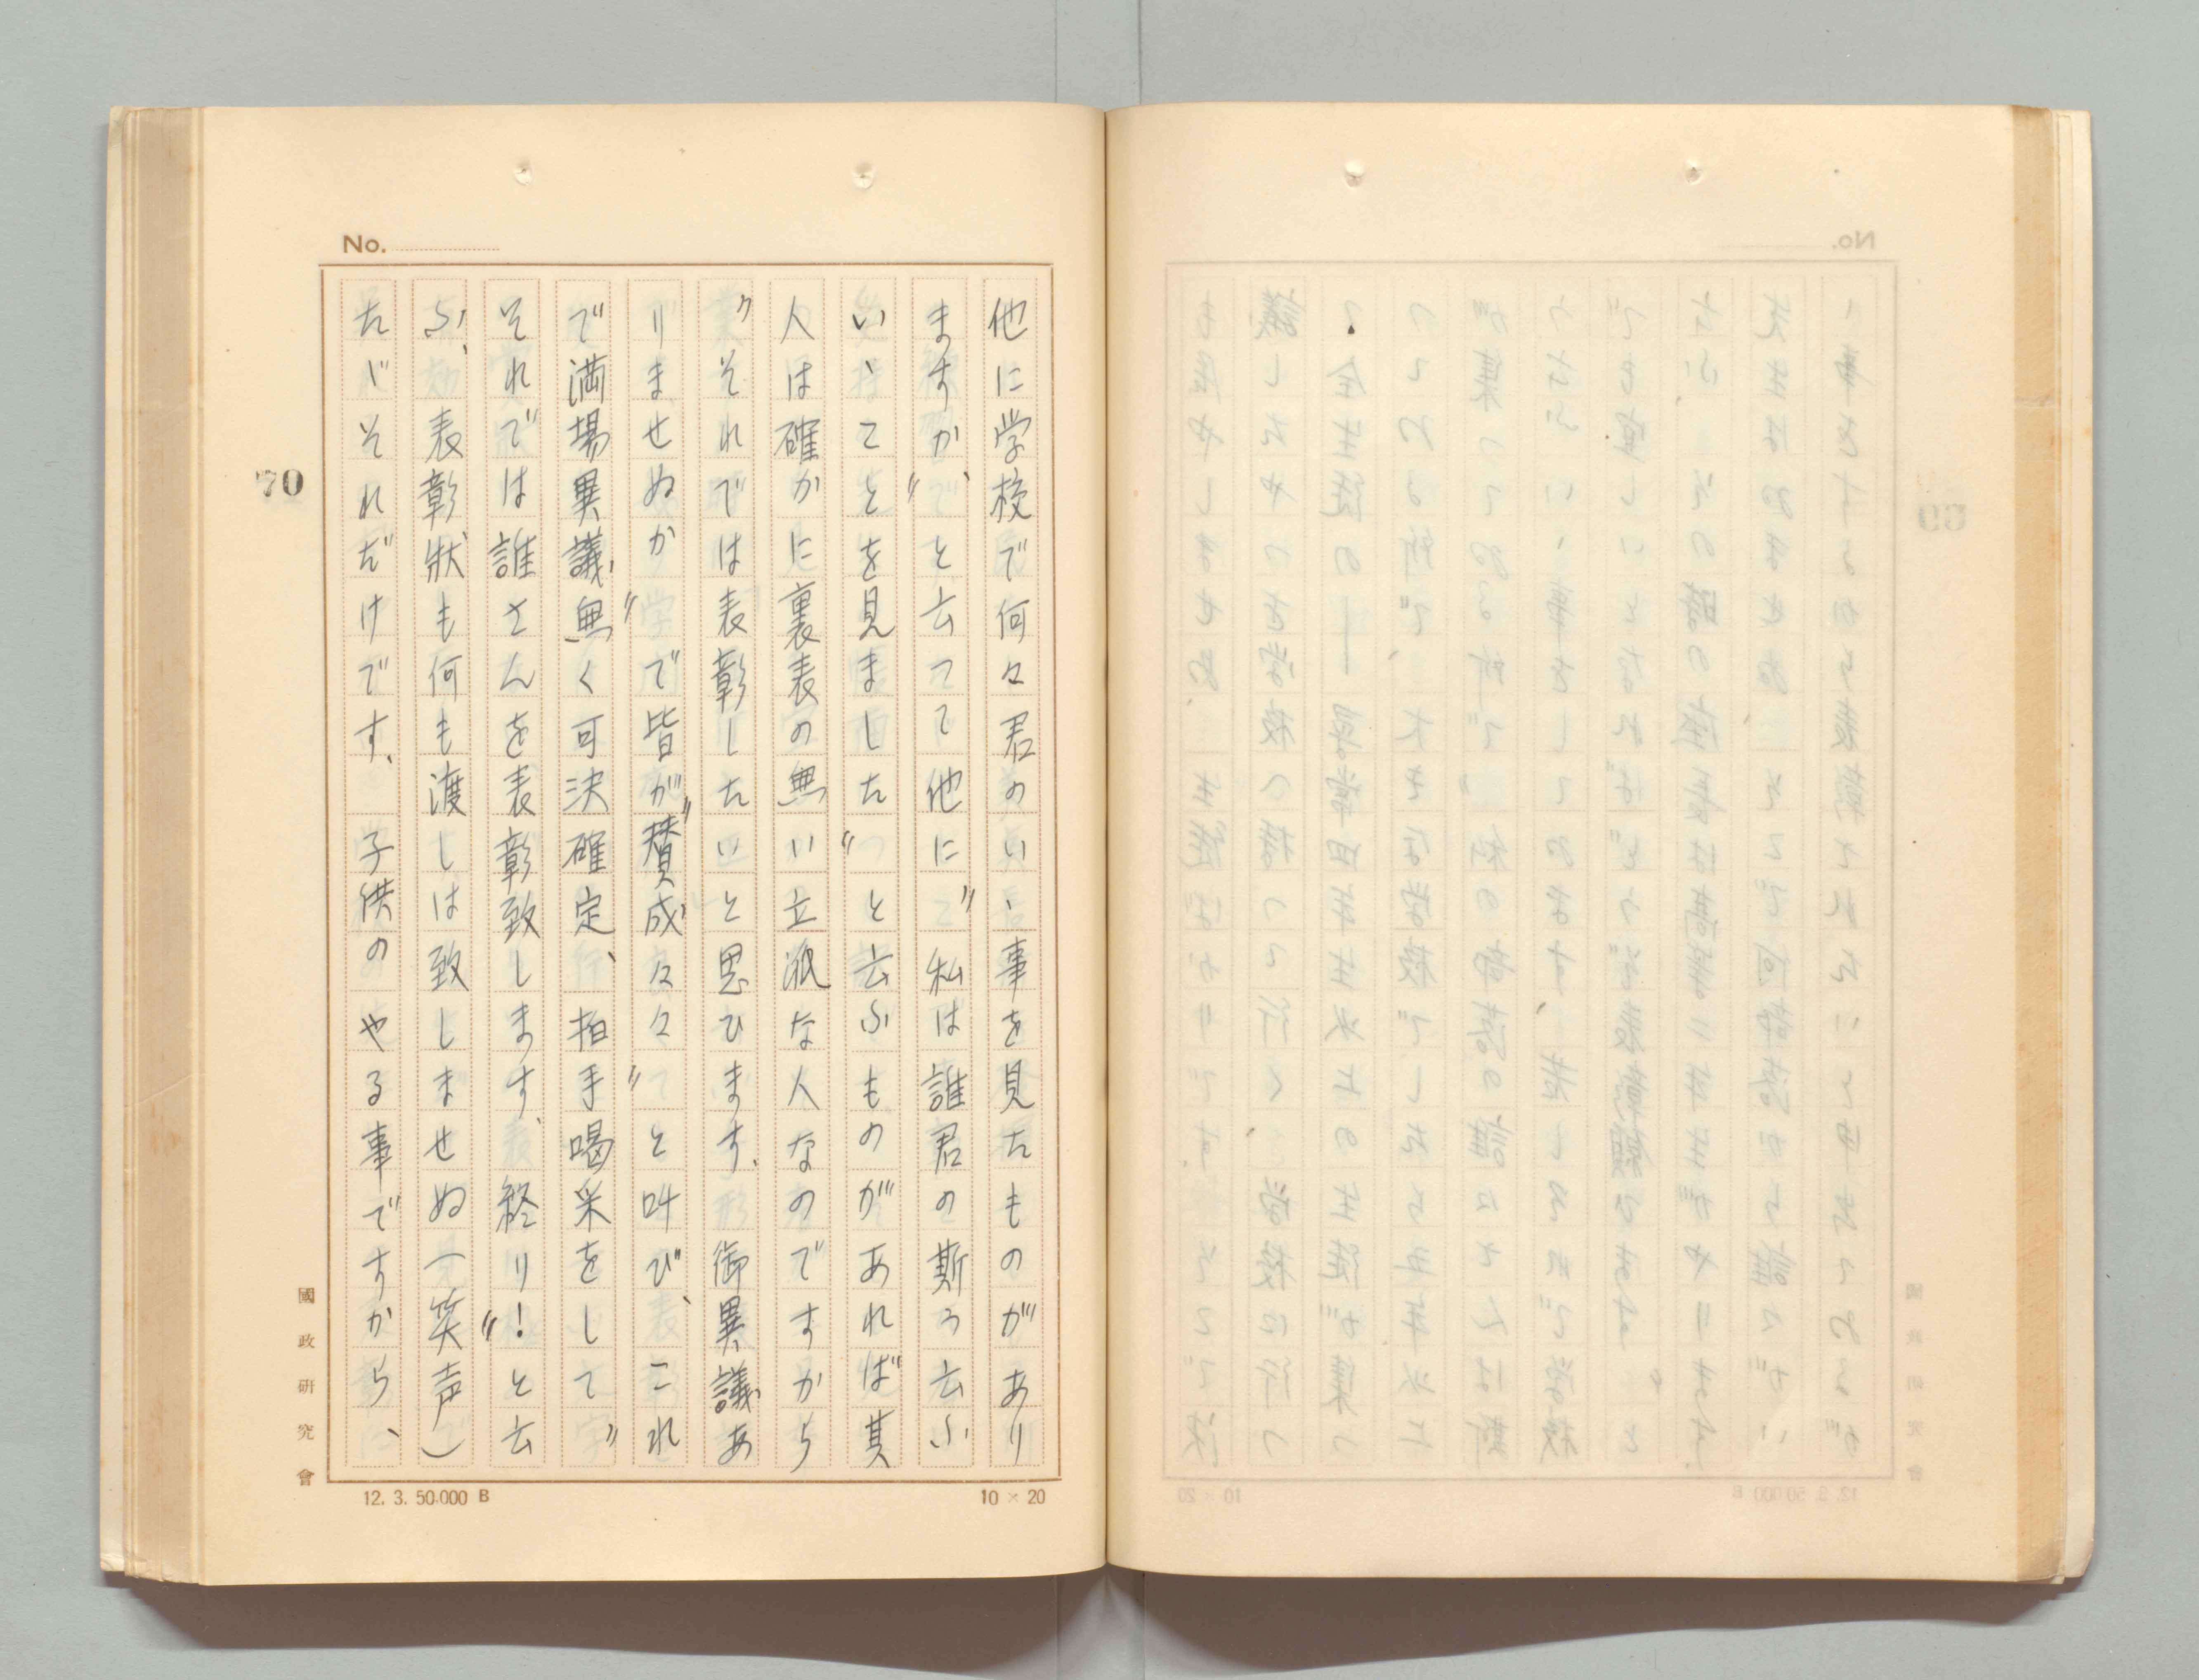 No.
他に学校で何々君のいゝ事を見たものがあり
ますか、〟と云つて他に〝私は誰君の斯う云ふ
いゝことを見ました〟と云ふものがあれば其
人は確かに裏表の無い立派な人なのですから
〝それでは表彰したいと思ひます、御異議あ
りませぬか〟で皆が〝賛成々々〟と叫び、これ
で満場異議無く可決確定、拍手喝采をして〝
それでは誰さんを表彰致します、終り！〟と云
ふ、表彰状も何も渡しは致しませぬ（笑声）
たゞそれだけです、子供のやる事ですから、
70
國政研究會
12. 3. 50.000 B
10 × 20